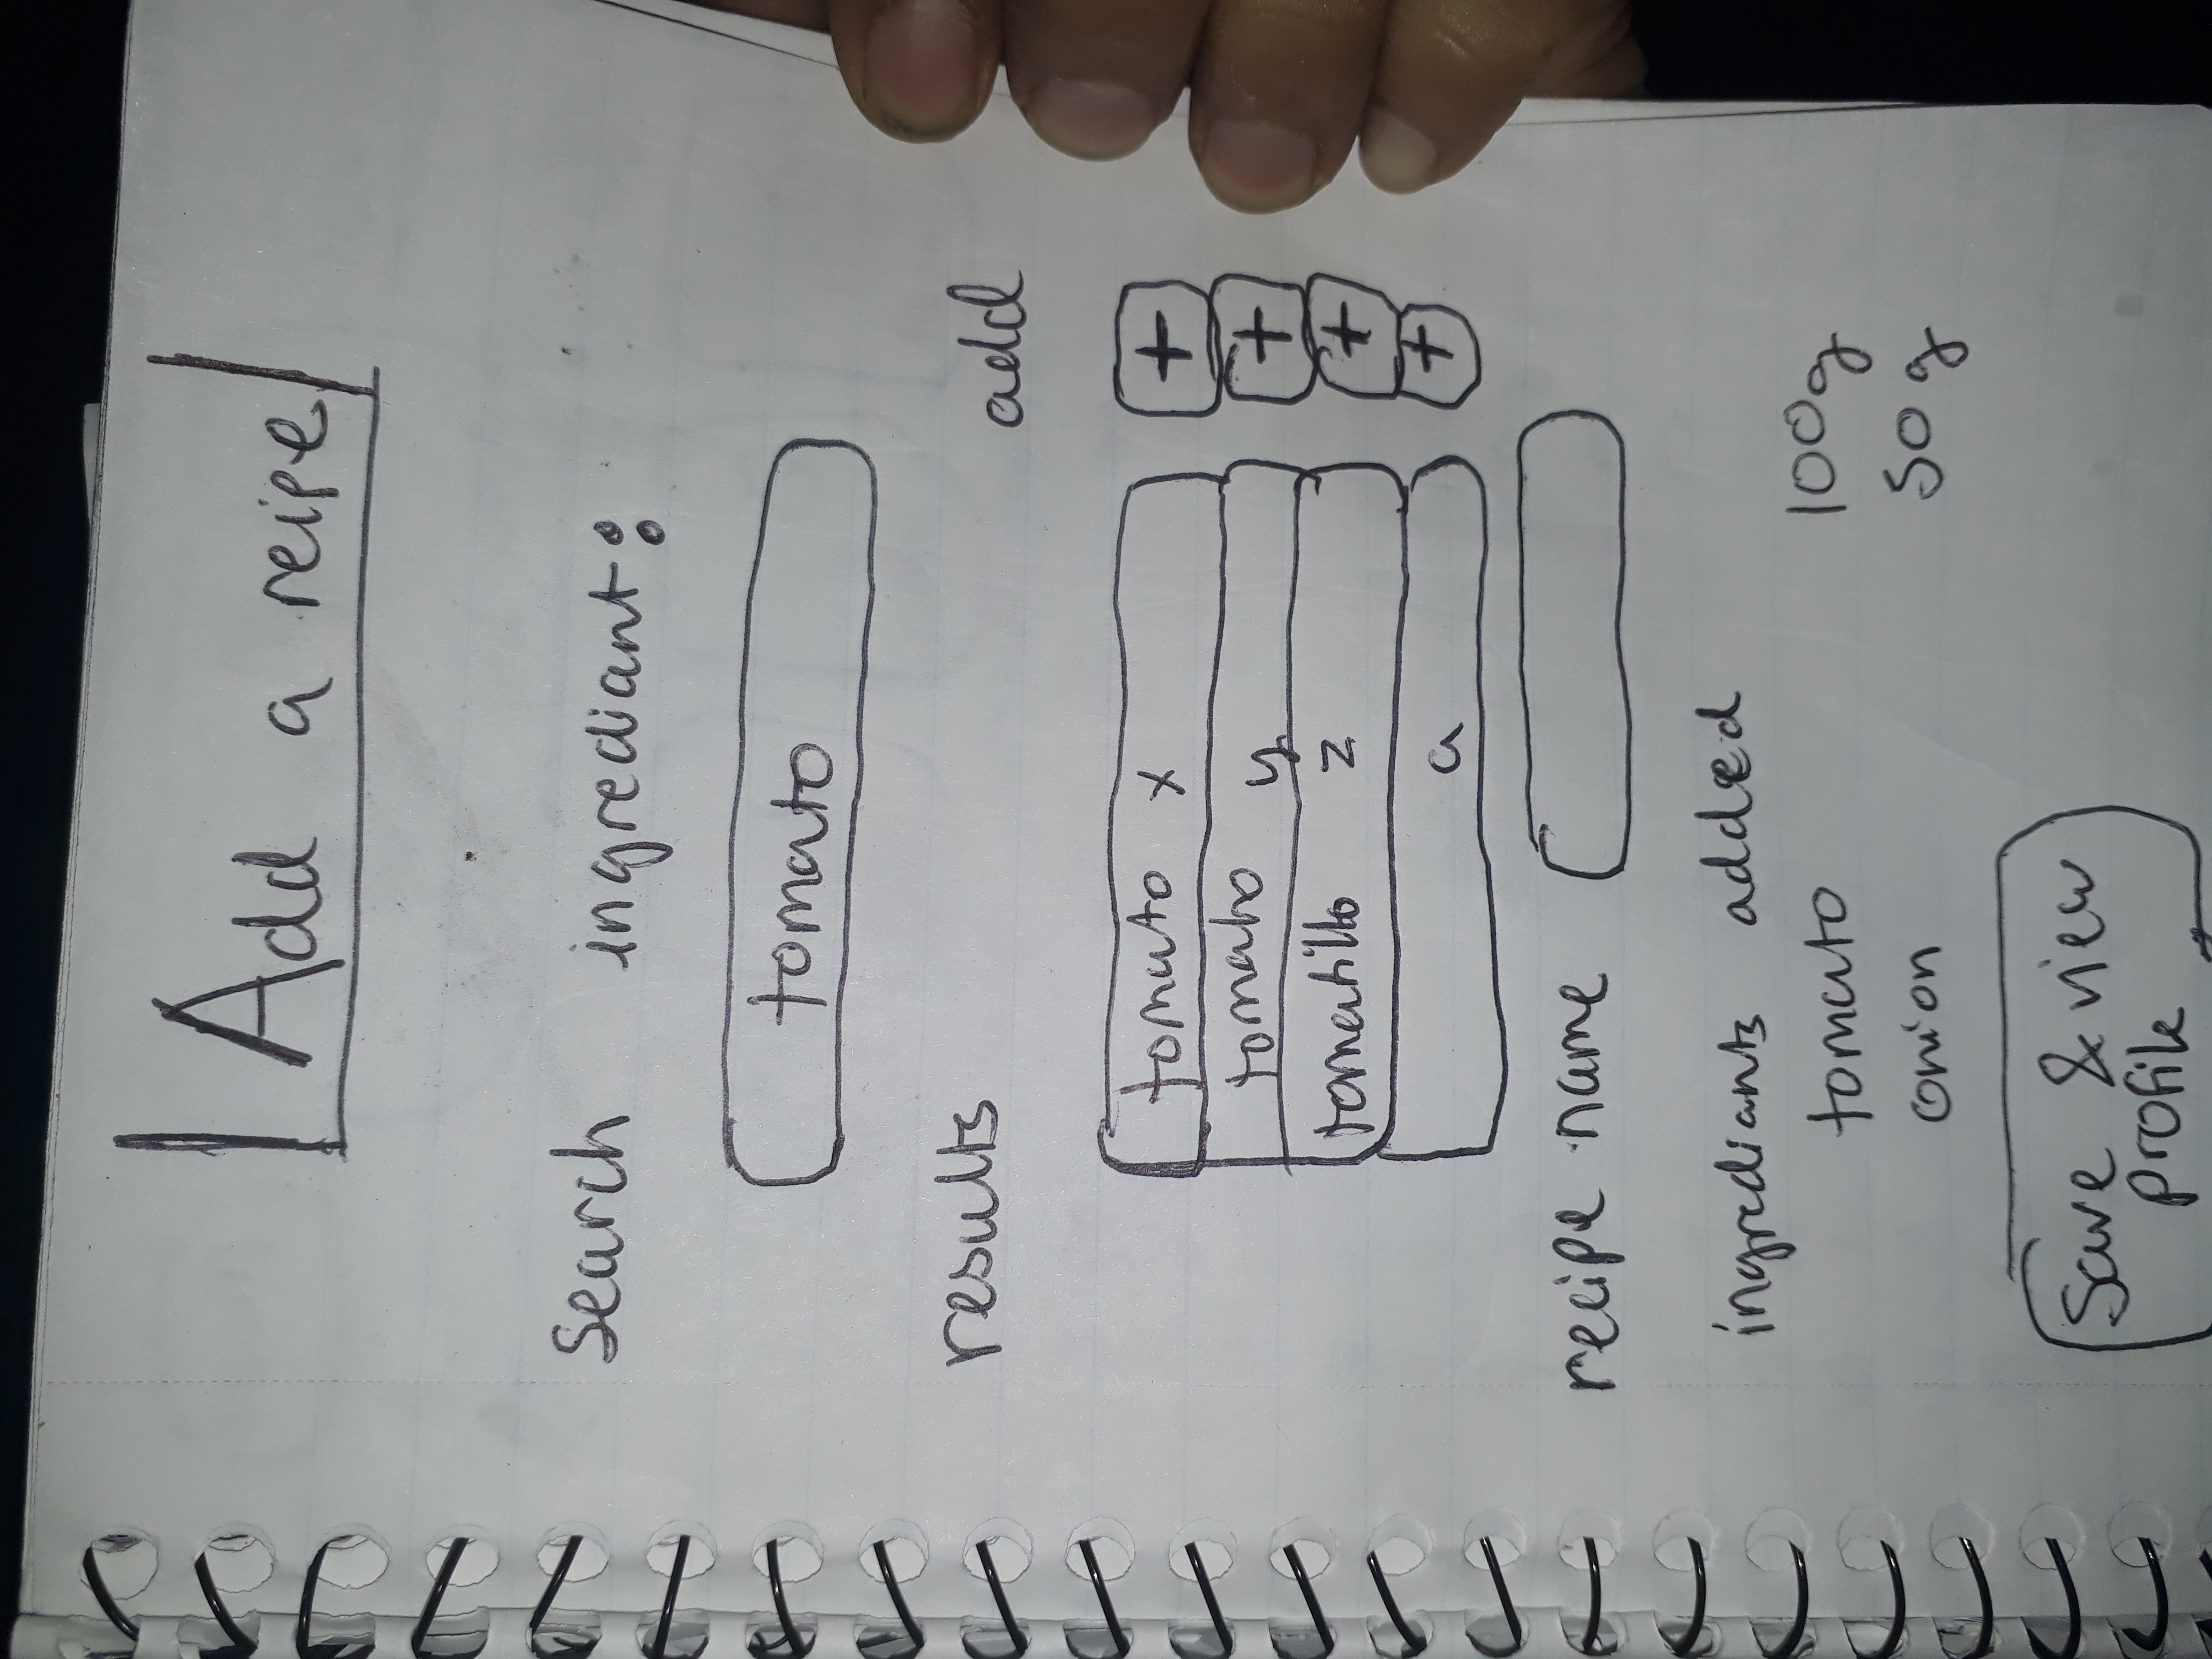 Add a reipe
search ingrediant:
tomato
results add
tomato x +
tomato y +
tomatillo z +
a +
recipe name
ingrediants added
tomato 100g
onion 50g
Save & view
profile